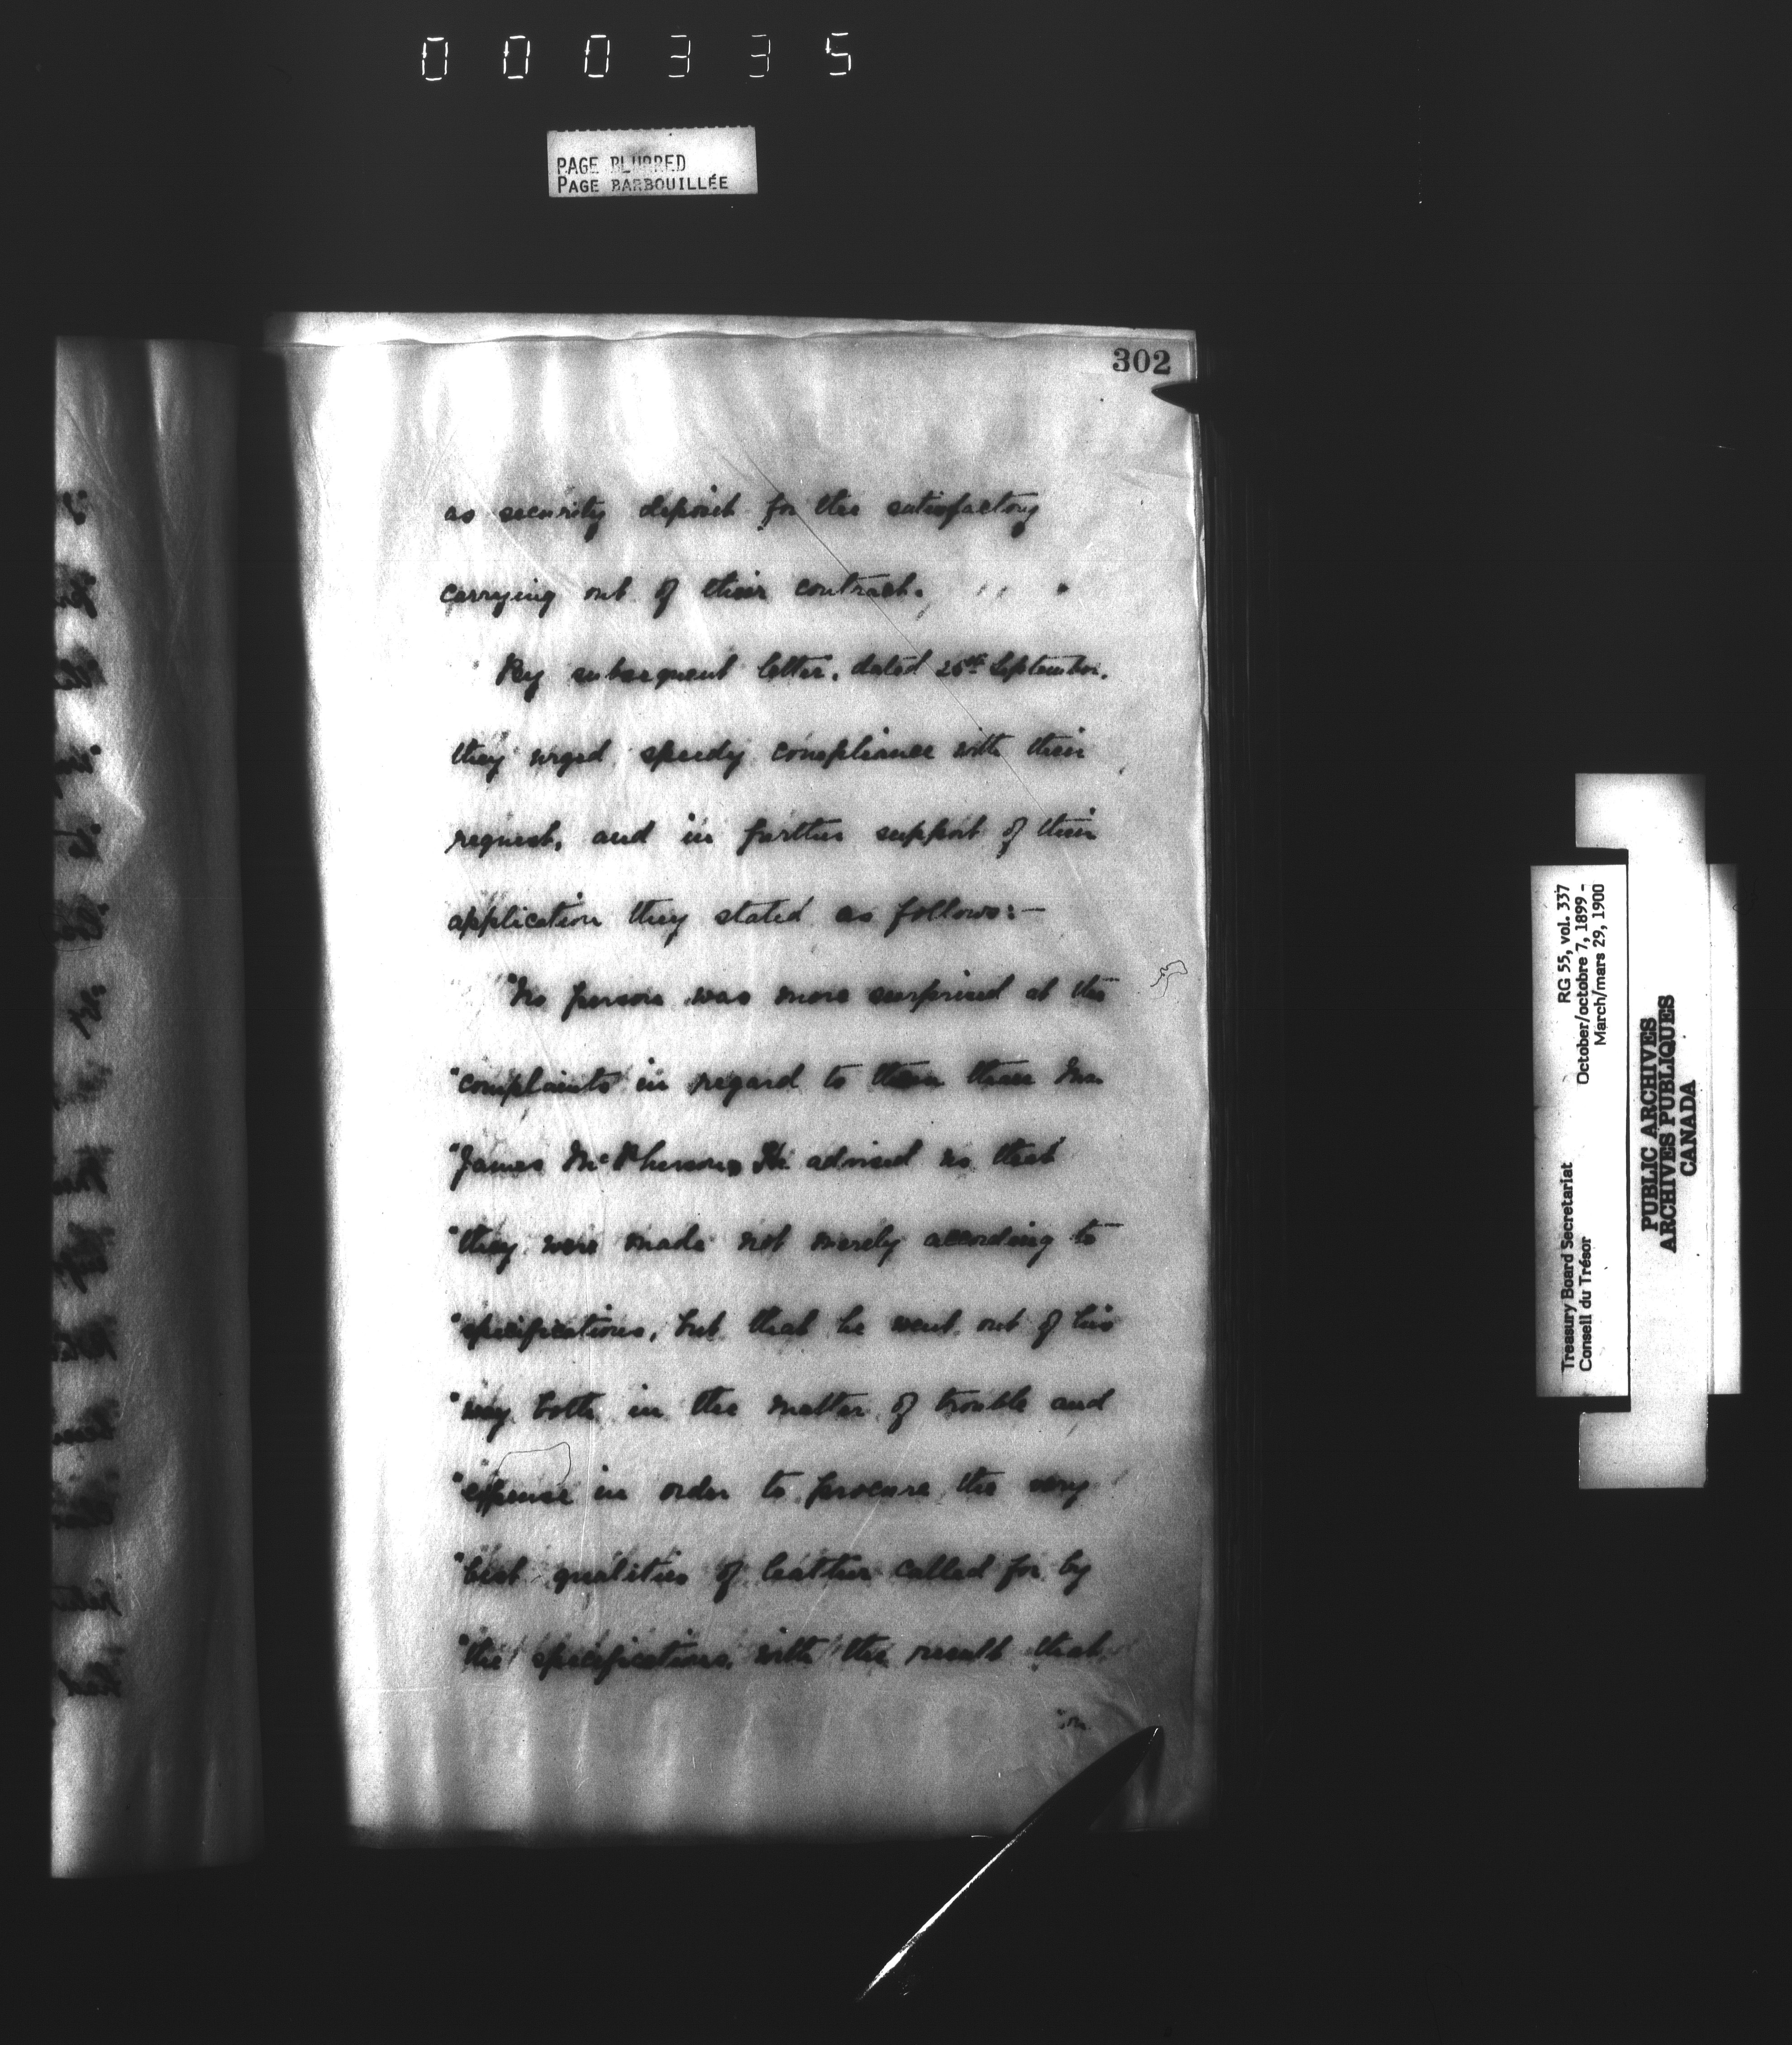 000335
PAGE BLURRED
PAGE BARBOUILLÉE
302
as security deposit for the satisfactory
carrying out of their contract.
By subsequent letter, dated 26th September,
they urged speedy compliance with their
request, and in further support of their
application they stated as follows:—
"No person was more surprised at the
"complaints in regard to them than Mr.
"James McPherson. He advised us that
"they were made not merely according to
"specifications, but that he went out of his
"way both in the matter of trouble and
"expense in order to procure the very
"best qualities of leather called for by
"the specifications, with the result that
Treasury Board Secretariat RG 55, vol. 337
Conseil du Trésor October/octobre 7, 1899 -
March/mars 29, 1900
PUBLIC ARCHIVES
ARCHIVES PUBLIQUES
CANADA